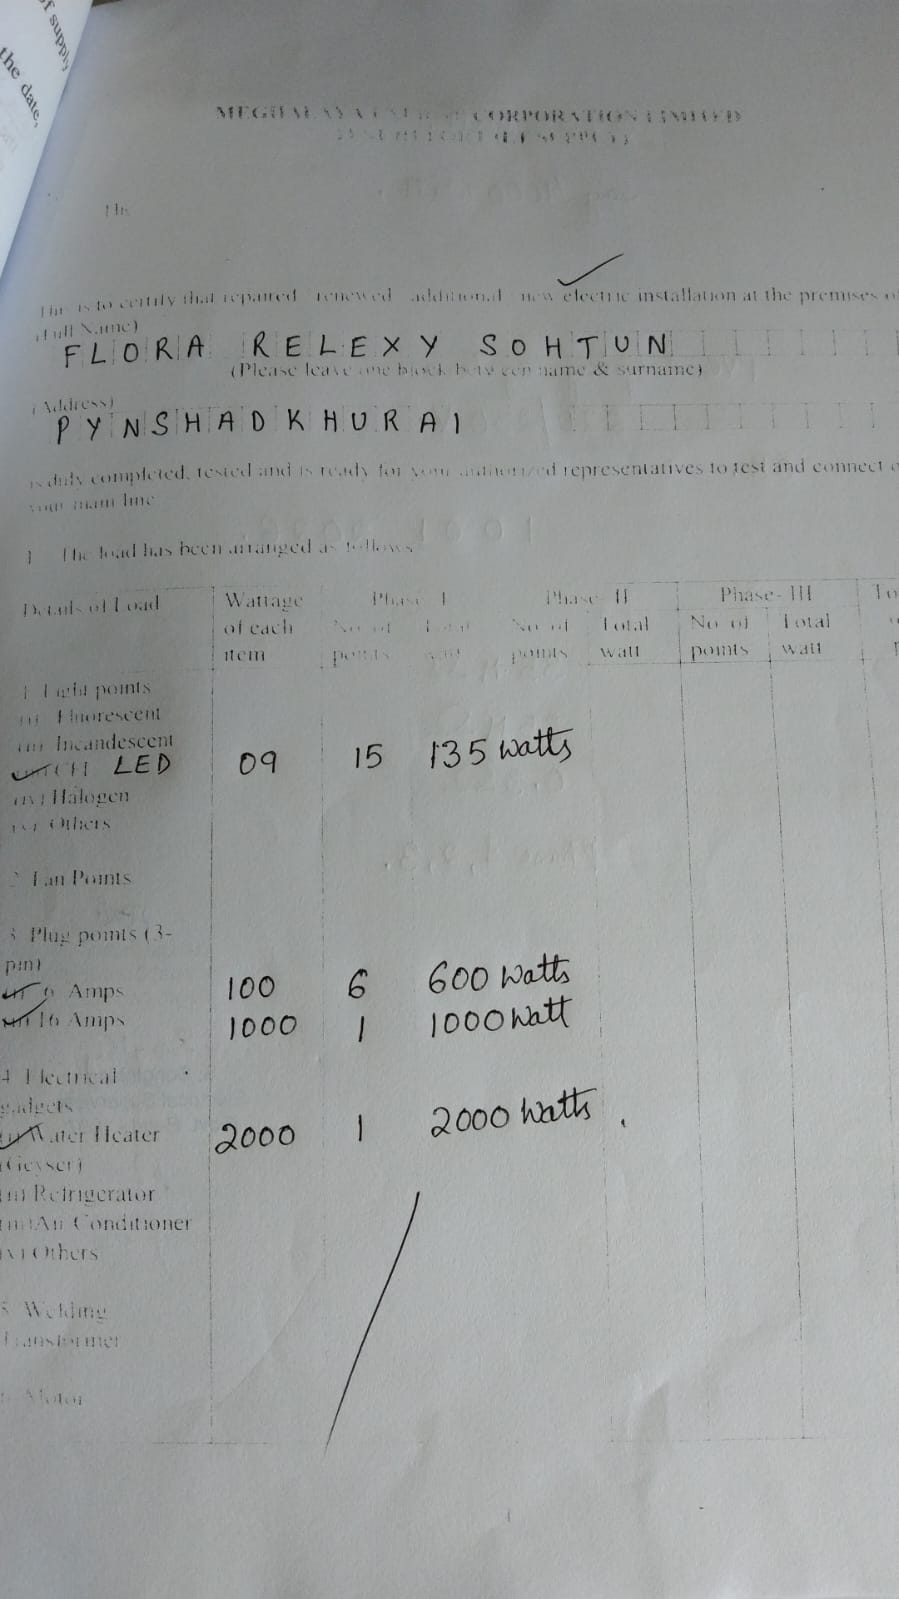 of supply
the date,
MEGHALAYA CORPORATION LIMITED
This is to certify that repaired renewed additional new electric installation at the premises of
(Full Name)
FLORA RELEXY SOHTUN
(Please leave one block between name & surname)
(Address)
PYNSHADKHURAI
is duly completed, tested and is ready for your authorized representatives to test and connect
your main line
1 The load has been arranged as follows
Details of Load Wattage of each item Phase- I Phase- II Phase- III
No of points Total watt No of points Total watt No of points Total watt
1 Light points
(i) Fluorescent
(ii) Incandescent
LED 09 15 135 watts
(iv) Halogen
(v) Others
2 Fan Points
3 Plug points (3-
pin)
6 Amps 100 6 600 watts
16 Amps 1000 1 1000 watt
4 Electrical
gadgets
(i) Water Heater 2000 1 2000 watts.
(Geyser)
(ii) Refrigerator
(iii) Air Conditioner
(iv) Others
5 Welding
Transformer
6 Motor